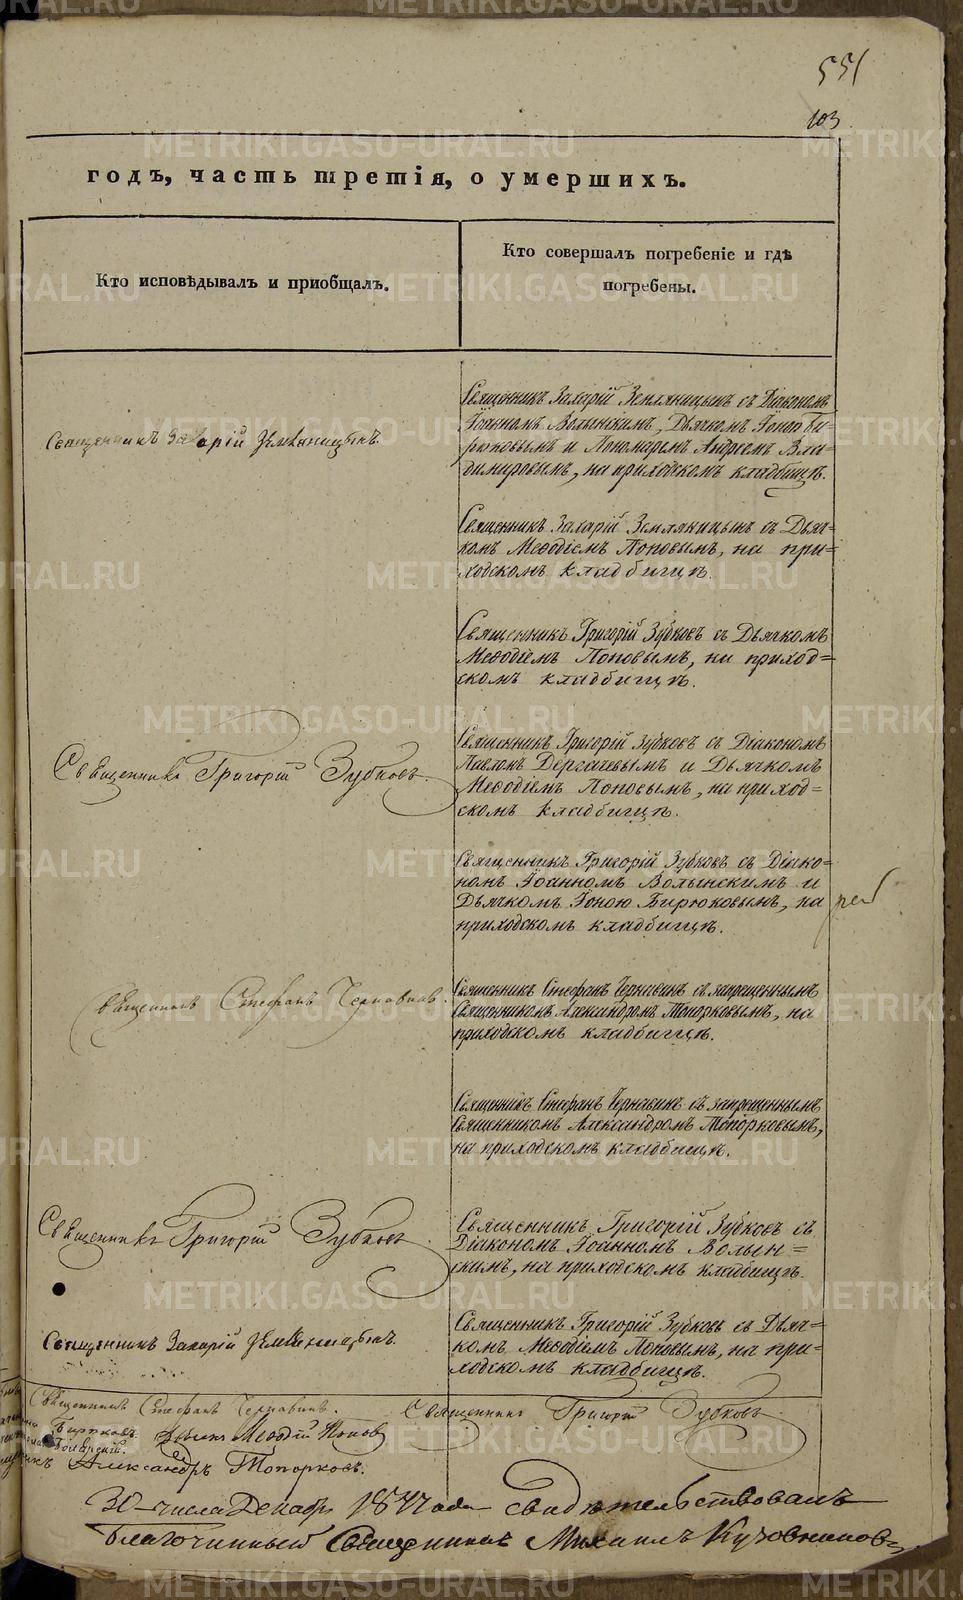 551
103
годъ, часть третія, о умершихъ.
Кто исповѣдывалъ и приобщалъ.
Кто совершалъ погребеніе и гдѣ
погребены.
Священникъ Захарій Земляницынъ
Священникъ Захарій Земляницынъ съ Діакономъ
Іоанномъ Волынскимъ, Дьячкомъ Іоною Би-
рюковымъ и Пономаремъ Андреемъ Вла-
димировымъ, на приходскомъ кладбищѣ.
Священникъ Захарій Земляницынъ съ Дьяч=
комъ Меѳодіемъ Поповымъ, на при=
ходскомъ кладбищѣ.
Священникъ Григорій Зубковъ съ Дьячкомъ
Меѳодіемъ Поповымъ, на приход=
скомъ кладбищѣ.
Священникъ Григорій Зубковъ.
Священникъ Григорій Зубковъ съ Діакономъ
Павломъ Дергачевымъ и Дьячкомъ
Меѳодіемъ Поповымъ, на приход=
скомъ кладбищѣ.
Священникъ Григорій Зубковъ съ Діако=
номъ Іоанномъ Волынскимъ и
Дьячкомъ Іоною Бирюковымъ, на
приходскомъ кладбищѣ.
Священникъ Стефанъ Чернавинъ.
Священникъ Стефанъ Чернавинъ съ запрещеннымъ
Священникомъ Александромъ Топорковымъ, на
приходскомъ кладбищѣ.
Священникъ Стефанъ Чернавинъ съ запрещеннымъ
Священникомъ Александромъ Топорковымъ,
на приходскомъ кладбищѣ.
Священникъ Григорій Зубковъ
Священникъ Григорій Зубковъ съ
Діакономъ Іоанномъ Волын=
скимъ, на приходскомъ кладбищѣ.
Священникъ Захарій Земляницынъ
Священникъ Григорій Зубковъ съ Дьяч=
комъ Меѳодіемъ Поповымъ, на при=
ходскомъ кладбищѣ.
Священникъ Стефанъ Чернавинъ. Священникъ Григорій Зубковъ
Бирюковъ. Дьячекъ Меѳодій Поповъ
Александръ Топорковъ.
30 числа Декабря года свидѣтельствовалъ
Благочинный Священникъ Михаилъ
METRIKI.GASO-URAL.RU